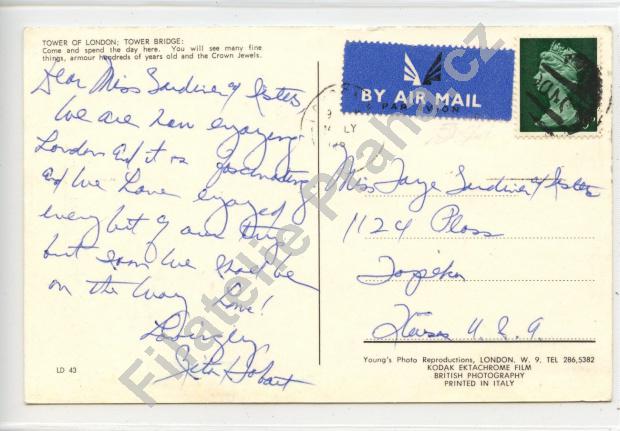 TOWER OF LONDON; TOWER BRIDGE:
Come and spend the day here. You will see many fine
things, armour hundreds of years old and the Crown Jewels.
Dear Miss Gardiner & Sister
We are now enjoying
London and it is fascinating
and we have enjoyed
every bit of our trip
but soon we shall be
on the way home!
Lovingly
Hobart
LD 43
BY AIR MAIL
PAR AVION
Miss Faye Gardiner & Sister
1124 Plass
Topeka
Kansas U.S.A.
Young's Photo Reproductions, LONDON, W. 9. TEL 286,5382
KODAK EKTACHROME FILM
BRITISH PHOTOGRAPHY
PRINTED IN ITALY
Filatelie Praha.cz